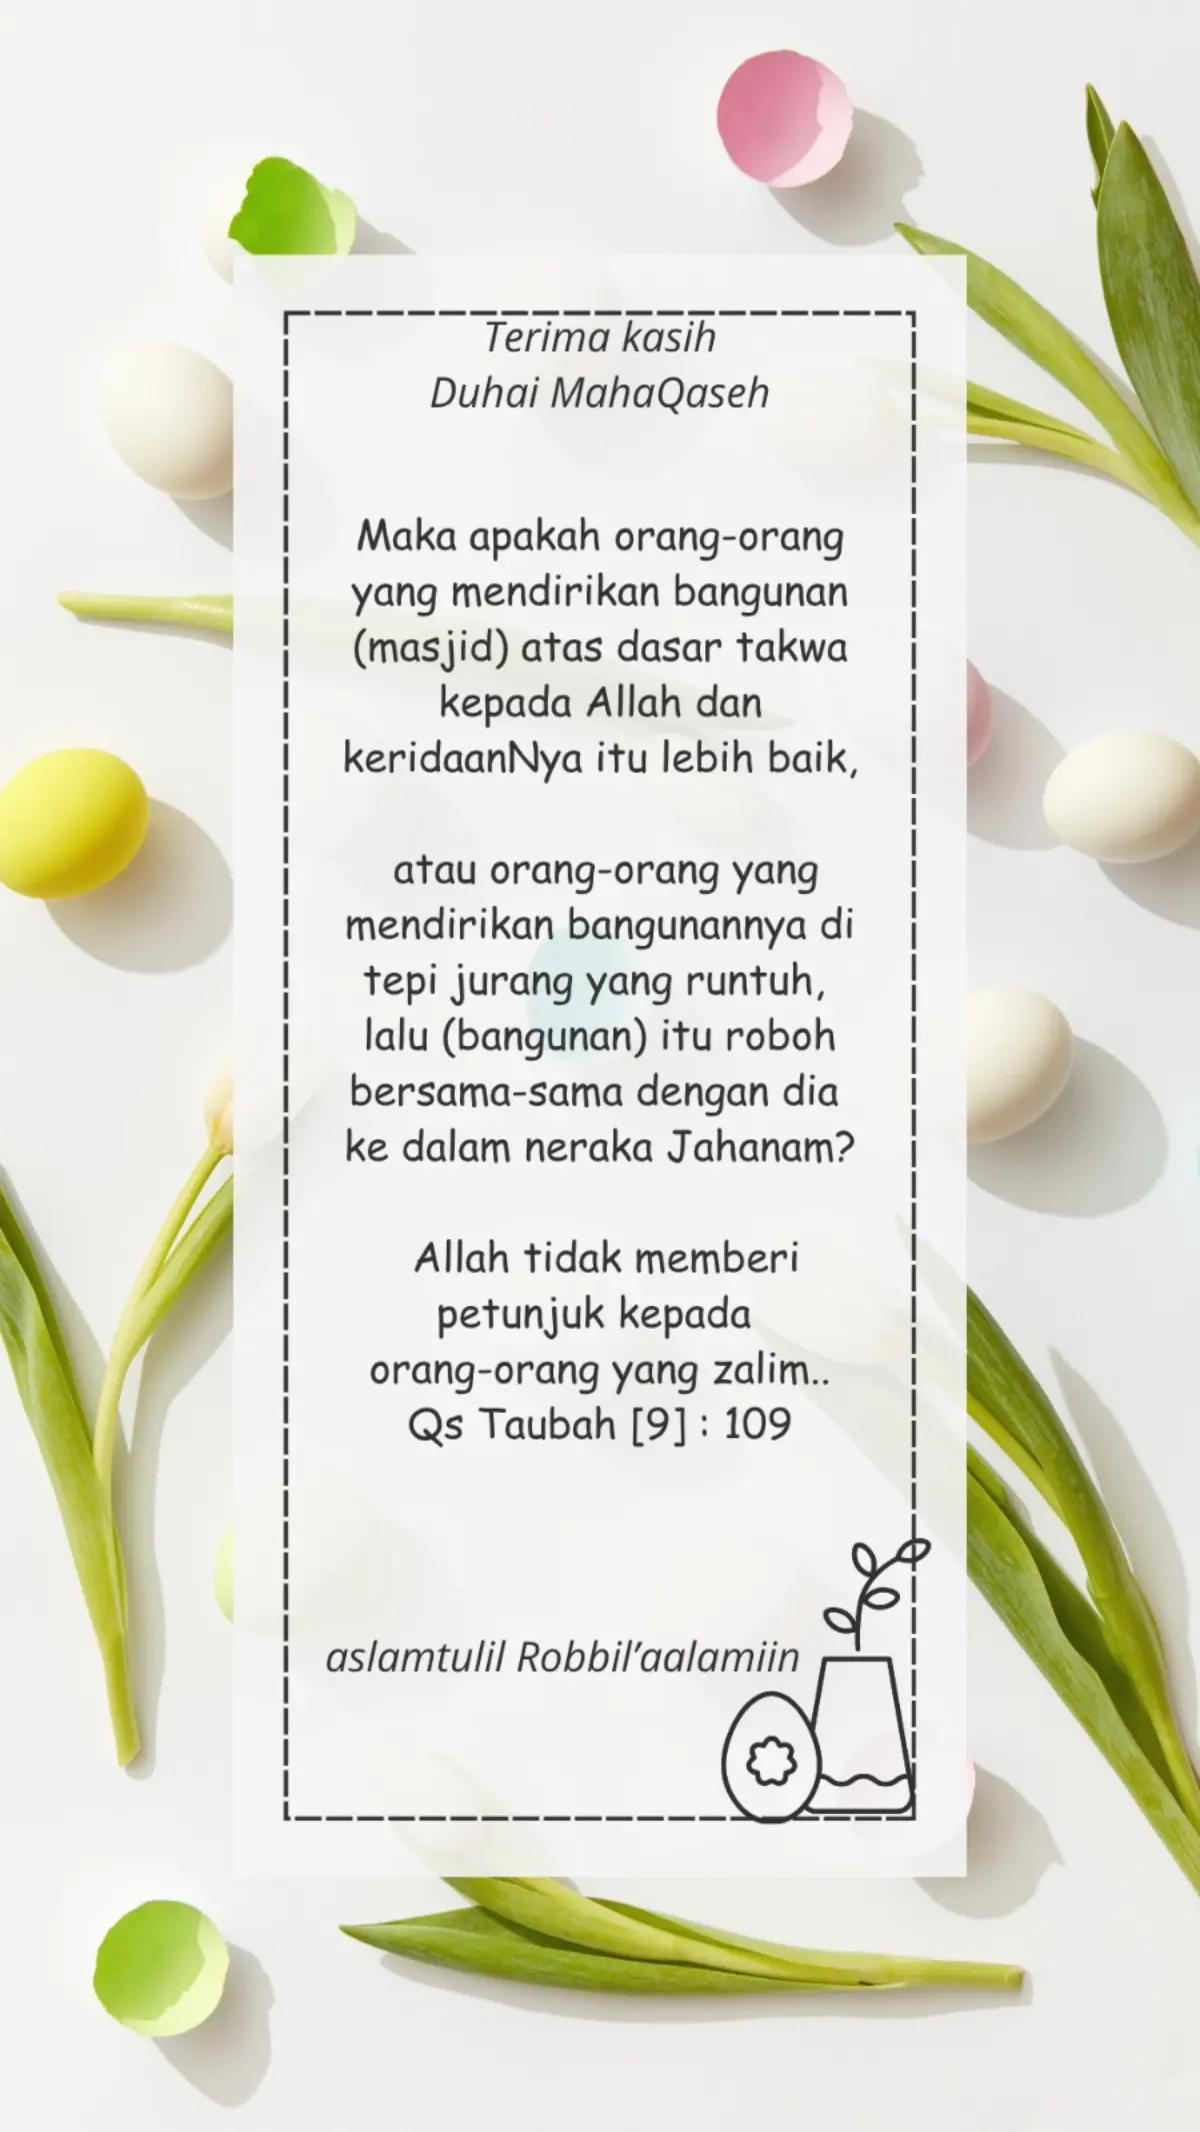 Terima kasih
Duhai MahaQaseh
Maka apakah orang-orang
yang mendirikan bangunan
(masjid) atas dasar takwa
kepada Allah dan
keridaanNya itu lebih baik,
atau orang-orang yang
mendirikan bangunannya di
tepi jurang yang runtuh,
lalu (bangunan) itu roboh
bersama-sama dengan dia
ke dalam neraka Jahanam?
Allah tidak memberi
petunjuk kepada
orang-orang yang zalim..
Qs Taubah [9] : 109
aslamtulil Robbil’aalamiin